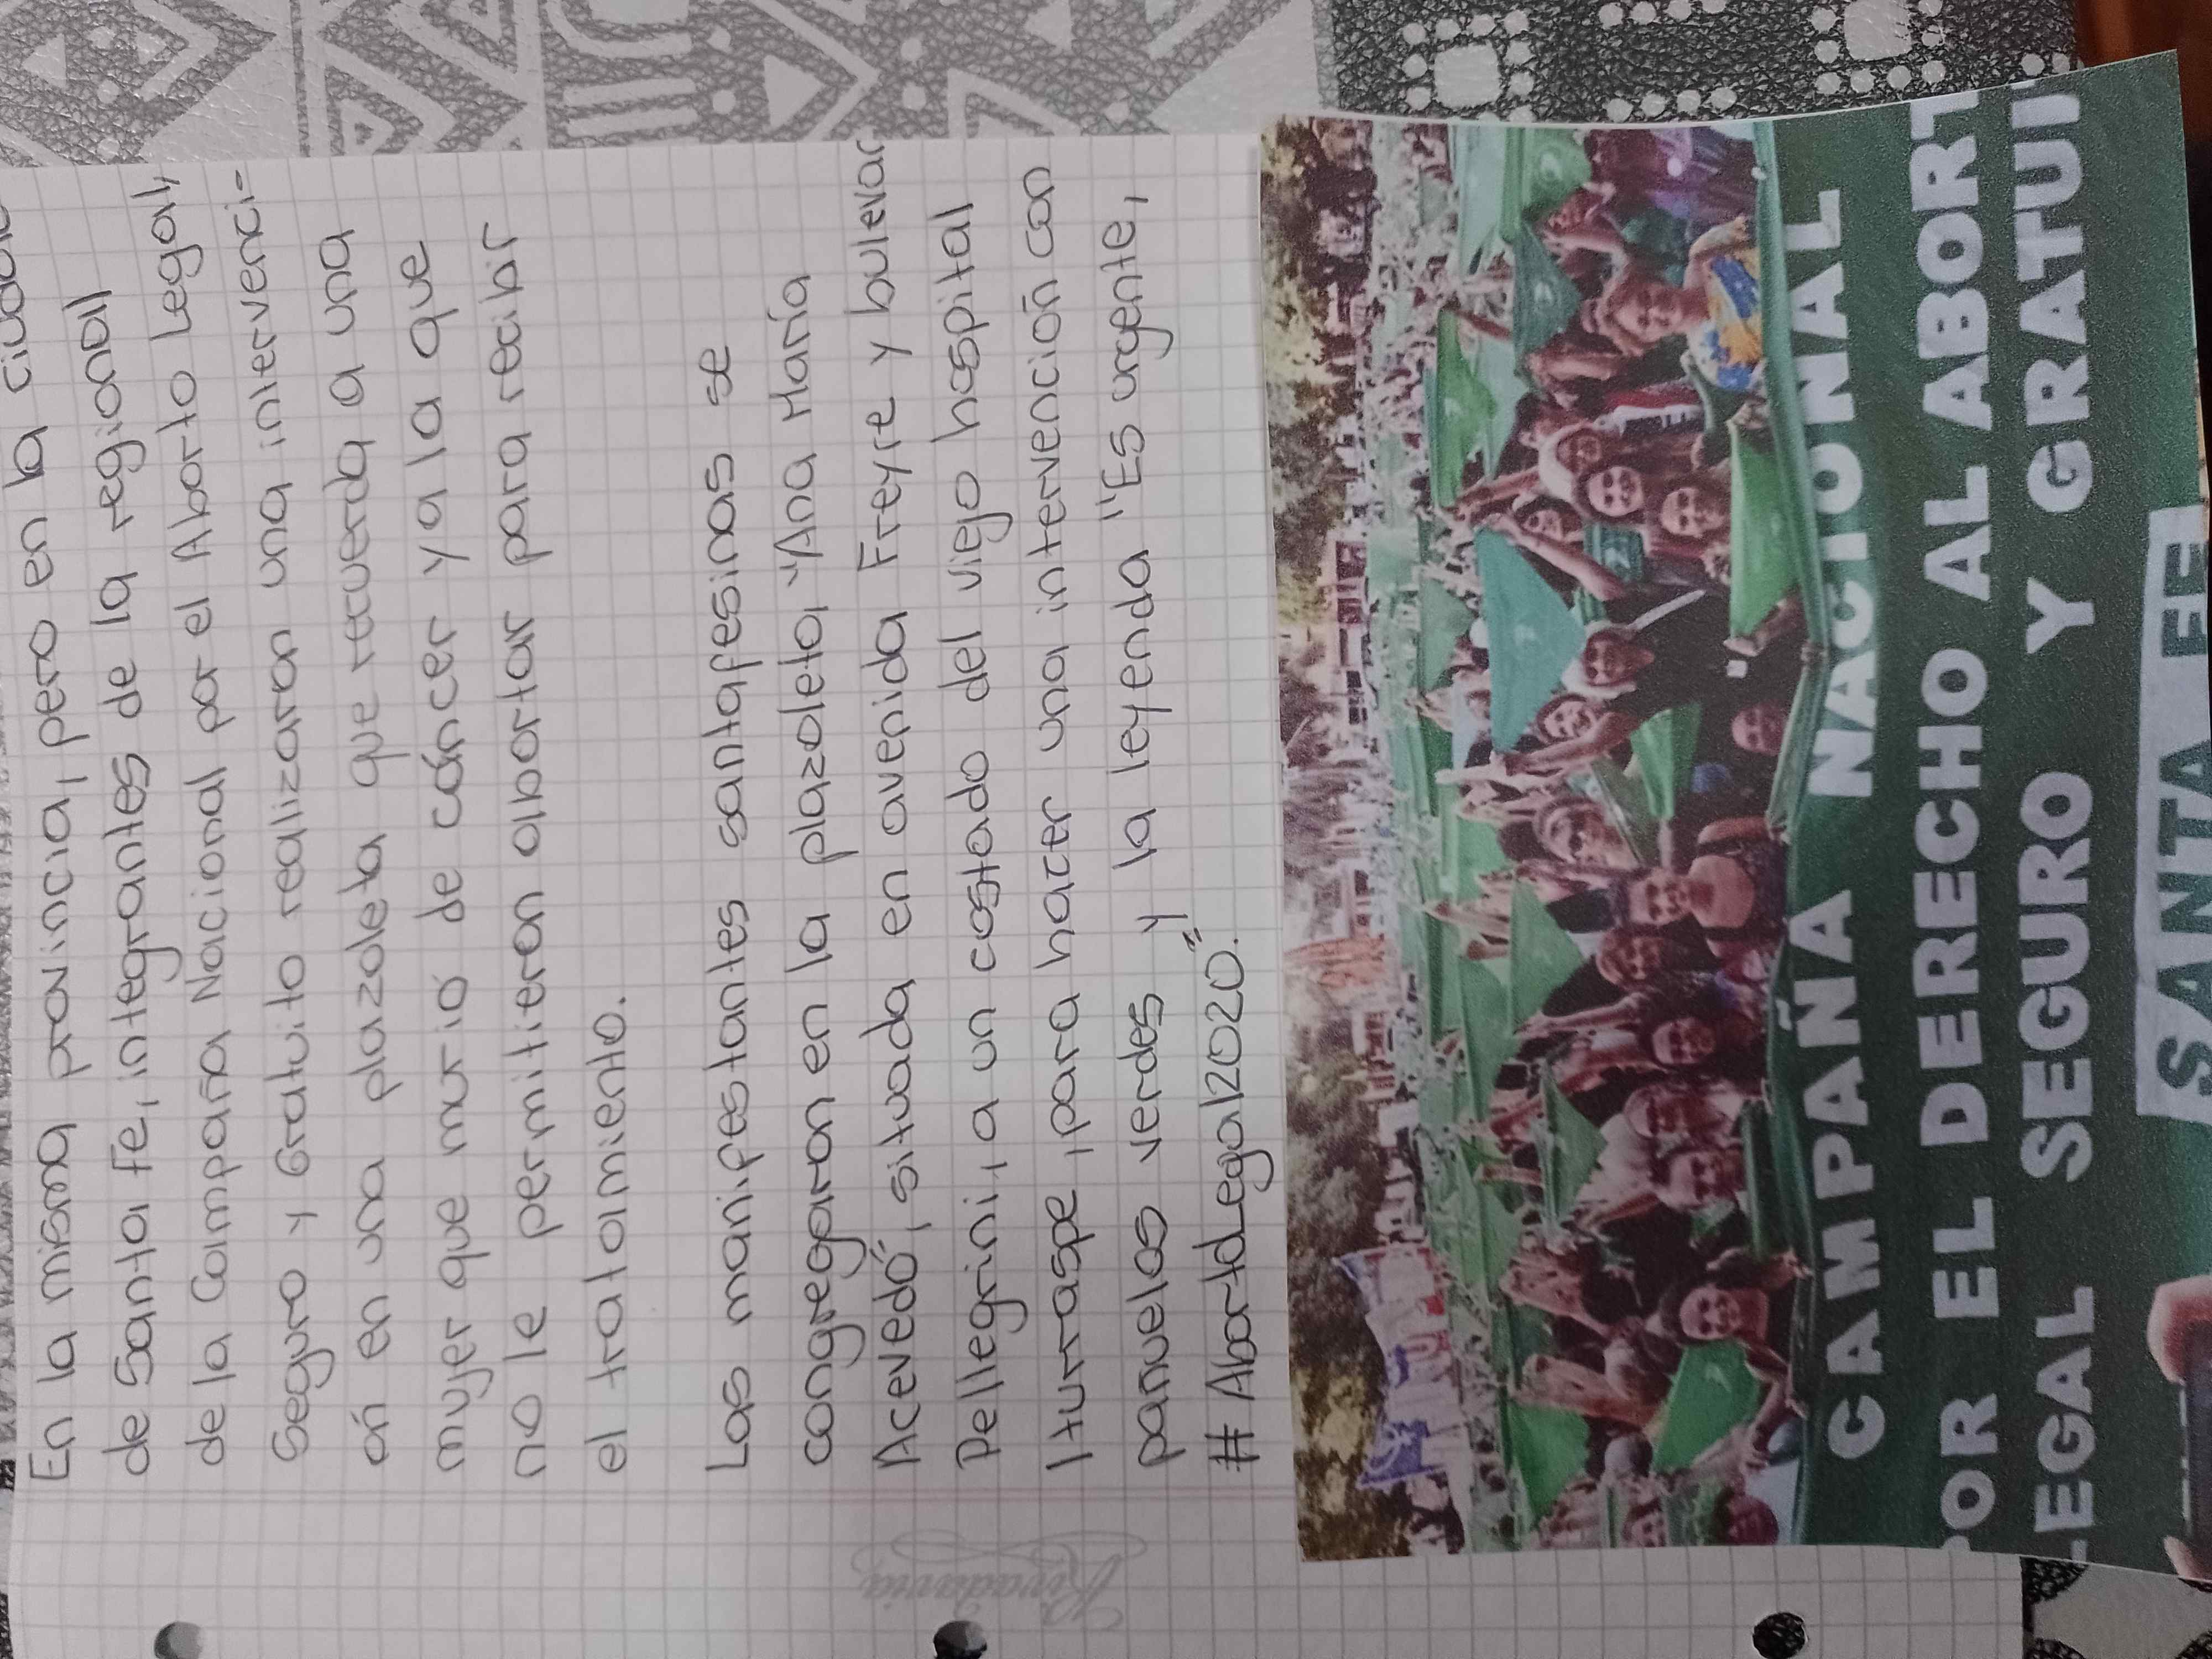 En la misma provincia, pero en la
de Santa Fe, integrantes de la regional
de la Campaña Nacional por el Aborto Legal,
Seguro y Gratuito realizaron una intervenci-
ón en una plazoleta que recuerda a una
mujer que murió de cáncer y a la que
no le permitieron abortar para recibir
el tratamiento.
Las manifestantes santafesinas se
congregaron en la plazoleta "Ana María
Acevedo", situada en avenida Freyre y bulevar
Pellegrini, a un costado del viejo hospital
Iturraspe, para hacer una intervención con
panuelos verdes y la leyenda "Es urgente,
#AbortoLegal2020".
Rivadavia
CAMPAÑA NACIONAL
POR EL DERECHO AL ABORT
LEGAL SEGURO Y GRATUI
SANTA FE